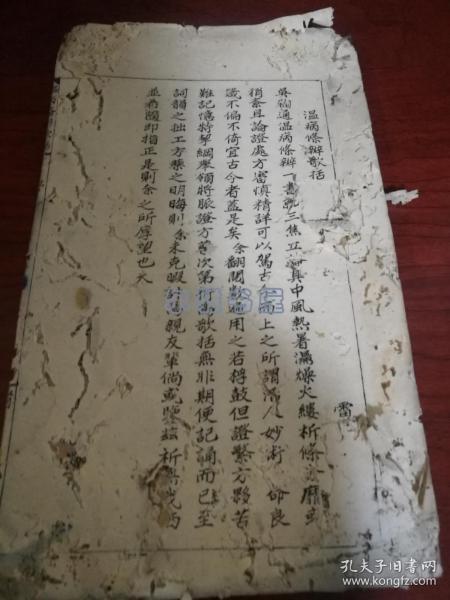 溫病條辨歌括
雷
吳鞠通溫病條辨一書就三焦立論其中風熱暑濕燥火縷析條分靡不
稍紊且論證處方審慎精詳可以駕古今而上之所謂濟人妙術命良
箴不偏不倚宜古今者蓋是矣余翻閱數過用之若桴鼓但證繁方夥苦
難記憶特挈綱舉領將脈證方藥次第編歌括無非期便記誦而已至
詞韻之拙工方藥之明晦則余未克暇計焉親友輩倘或鑒茲析
並希隨即指正是則余之所厚望也夫
孔夫子旧书网
www.kongfz.com